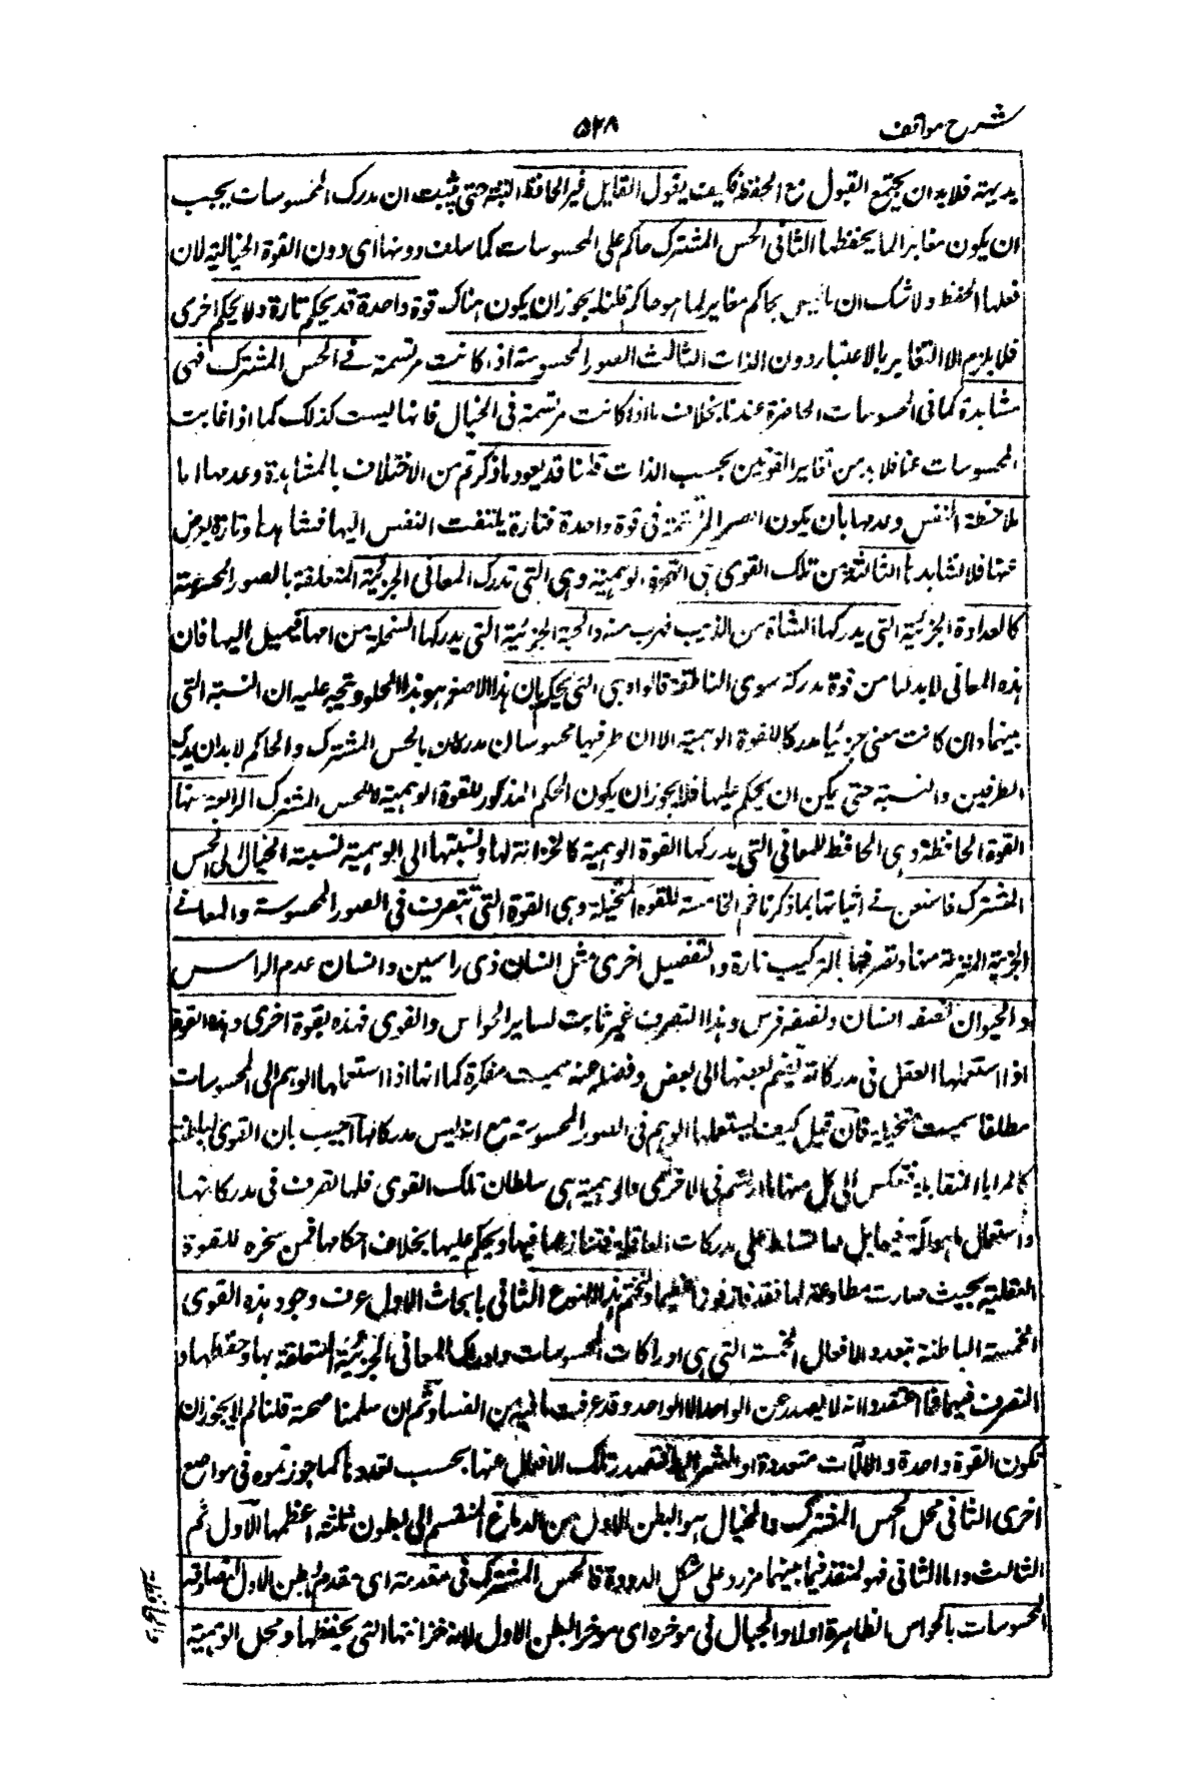 شرح مواقف
٥٢٨
بديهة فلا بد ان يجتمع القبول مع الحفظ فكيف يقول القابل غير الحافظ البتة حتى يثبت ان مدرك المحسوسات يجب
ان يكون مغايرا لما يحفظها الثانى الحس المشترك حاكم على المحسوسات كما سلف دونها اى دون القوة الخيالية لان
فعلها الحفظ ولا شك ان ما ليس بحاكم مغاير لما هو حاكم قلنا يجوز ان يكون هناك قوة واحدة قد يحكم تارة ولا يحكم اخرى
فلا يلزم الا التغاير بالاعتبار دون الذات الثالث الصور المحسوسة اذا كانت مرتسمة فى الحس المشترك فهى
مشاهدة كما فى المحسوسات الحاضرة عندنا بخلاف ما اذا كانت مرتسمة فى الخيال فانها ليست كذلك كما اذا غابت
المحسوسات عنا فلا بد من تغاير القوتين بحسب الذات قلنا قد يعود ما ذكرتم من الاختلاف بالمشاهدة وعدمها اما
ملاحظة النفس وعدمها بان يكون الصور المرتسمة فى قوة واحدة فتارة يلتفت النفس اليها فنشاهدها وتارة يعرض
عنها فلا نشاهدها الثالثة من تلك القوى هى القوة الوهمية وهى التى تدرك المعانى الجزئية المتعلقة بالصور المحسوسة
كالعداوة الجزئية التى يدركها الشاة من الذئب فهرب منه والمحبة الجزئية التى يدركها السخلة من امها فيميل اليها فان
هذه المعانى لا بد لها من قوة مدركة سوى الناطقة قالوا وهى التى يحكم بان هذا الاصفر هو هذا الحلو ويتجه عليه ان النسبة التى
بينهما وان كانت معنى جزئيا مدركا للقوة الوهمية الا ان طرفيها محسوسان مدركان بالحس المشترك والحاكم لا بد ان يدرك
الطرفين والنسبة حتى يمكن ان يحكم عليها فلا يجوز ان يكون الحكم المذكور للقوة الوهمية لا للحس المشترك الرابعة منها
القوة الحافظة وهى الحافظ للمعانى التى يدركها القوة الوهمية كالخزانة لها ونسبتها الى الوهمية نسبة الخيال الى الحس
المشترك فاستغن فى اثباتها بما ذكرنا ثم الخامسة للقوة المتخيلة وهى القوة التى تتصرف فى الصور المحسوسة والمعانى
الجزئية المنتزعة منها وتصرفها بالتركيب تارة والتفصيل اخرى مثل انسان ذى راسين وانسان عدم الراس
والحيوان نصفه انسان ونصفه فرس وهذا التصرف غير ثابت لساير الحواس والقوى فهذه بقوة اخرى وهذه القوة
اذا استعملها العقل فى مدركاته بضم بعضها الى بعض وفصله عنه سميت مفكرة كما انها اذا استعملها الوهم الى المحسوسات
مطلقا سميت متخيلة فان قيل كيف يستعملها الوهم فى الصور المحسوسة مع انه ليس مدركالها اجيب بان القوى الباطنة
كالمرايا المتقابلة فتنعكس الى كل منها ما ارتسم فى الاخرى والوهمية هى سلطان تلك القوى فلها تصرف فى مدركاتها
واستعمال ما هو آلة فيها بل لها تسلط على مدركات العاقلة فتنازعها فيها ويحكم عليها بخلاف احكامها فمن سخره للقوة
العقلية بحيث صارت مطاوعة لها فقد فاز فوزا عظيما ولنختم هذا النوع الثانى بابحاث الاول عرفت وجود هذه القوى
الخمسة الباطنة بتعدد الافعال الخمسة التى هى ادراكات المحسوسات وادراك المعانى الجزئية المتعلقة بها وحفظها و
التصرف فيهما فما اعتقدوا انه لا يصدر عن الواحد الا الواحد وقد عرفت ما فيه من الفساد ثم ان سلمنا صحته قلنا لم لا يجوز ان
تكون القوة واحدة والآلات متعددة او الشرايط فتصدر تلك الافعال عنها بحسب تعددها كما جوزتموه فى مواضع
اخرى الثانى محل الحس المشترك والخيال هو البطن الاول من الدماغ المنقسم الى بطون ثلثة اعظمها الاول ثم
الثالث واما الثانى فهو كمنفذ فيما بينهما مزرد على شكل الدودة فالحس المشترك فى مقدمته اى مقدم البطن الاول
المحسوسات بالحواس الظاهرة اولا والخيال فى موخره اى موخر البطن الاول لانه خزانتها التى يحفظها ومحل الوهمية